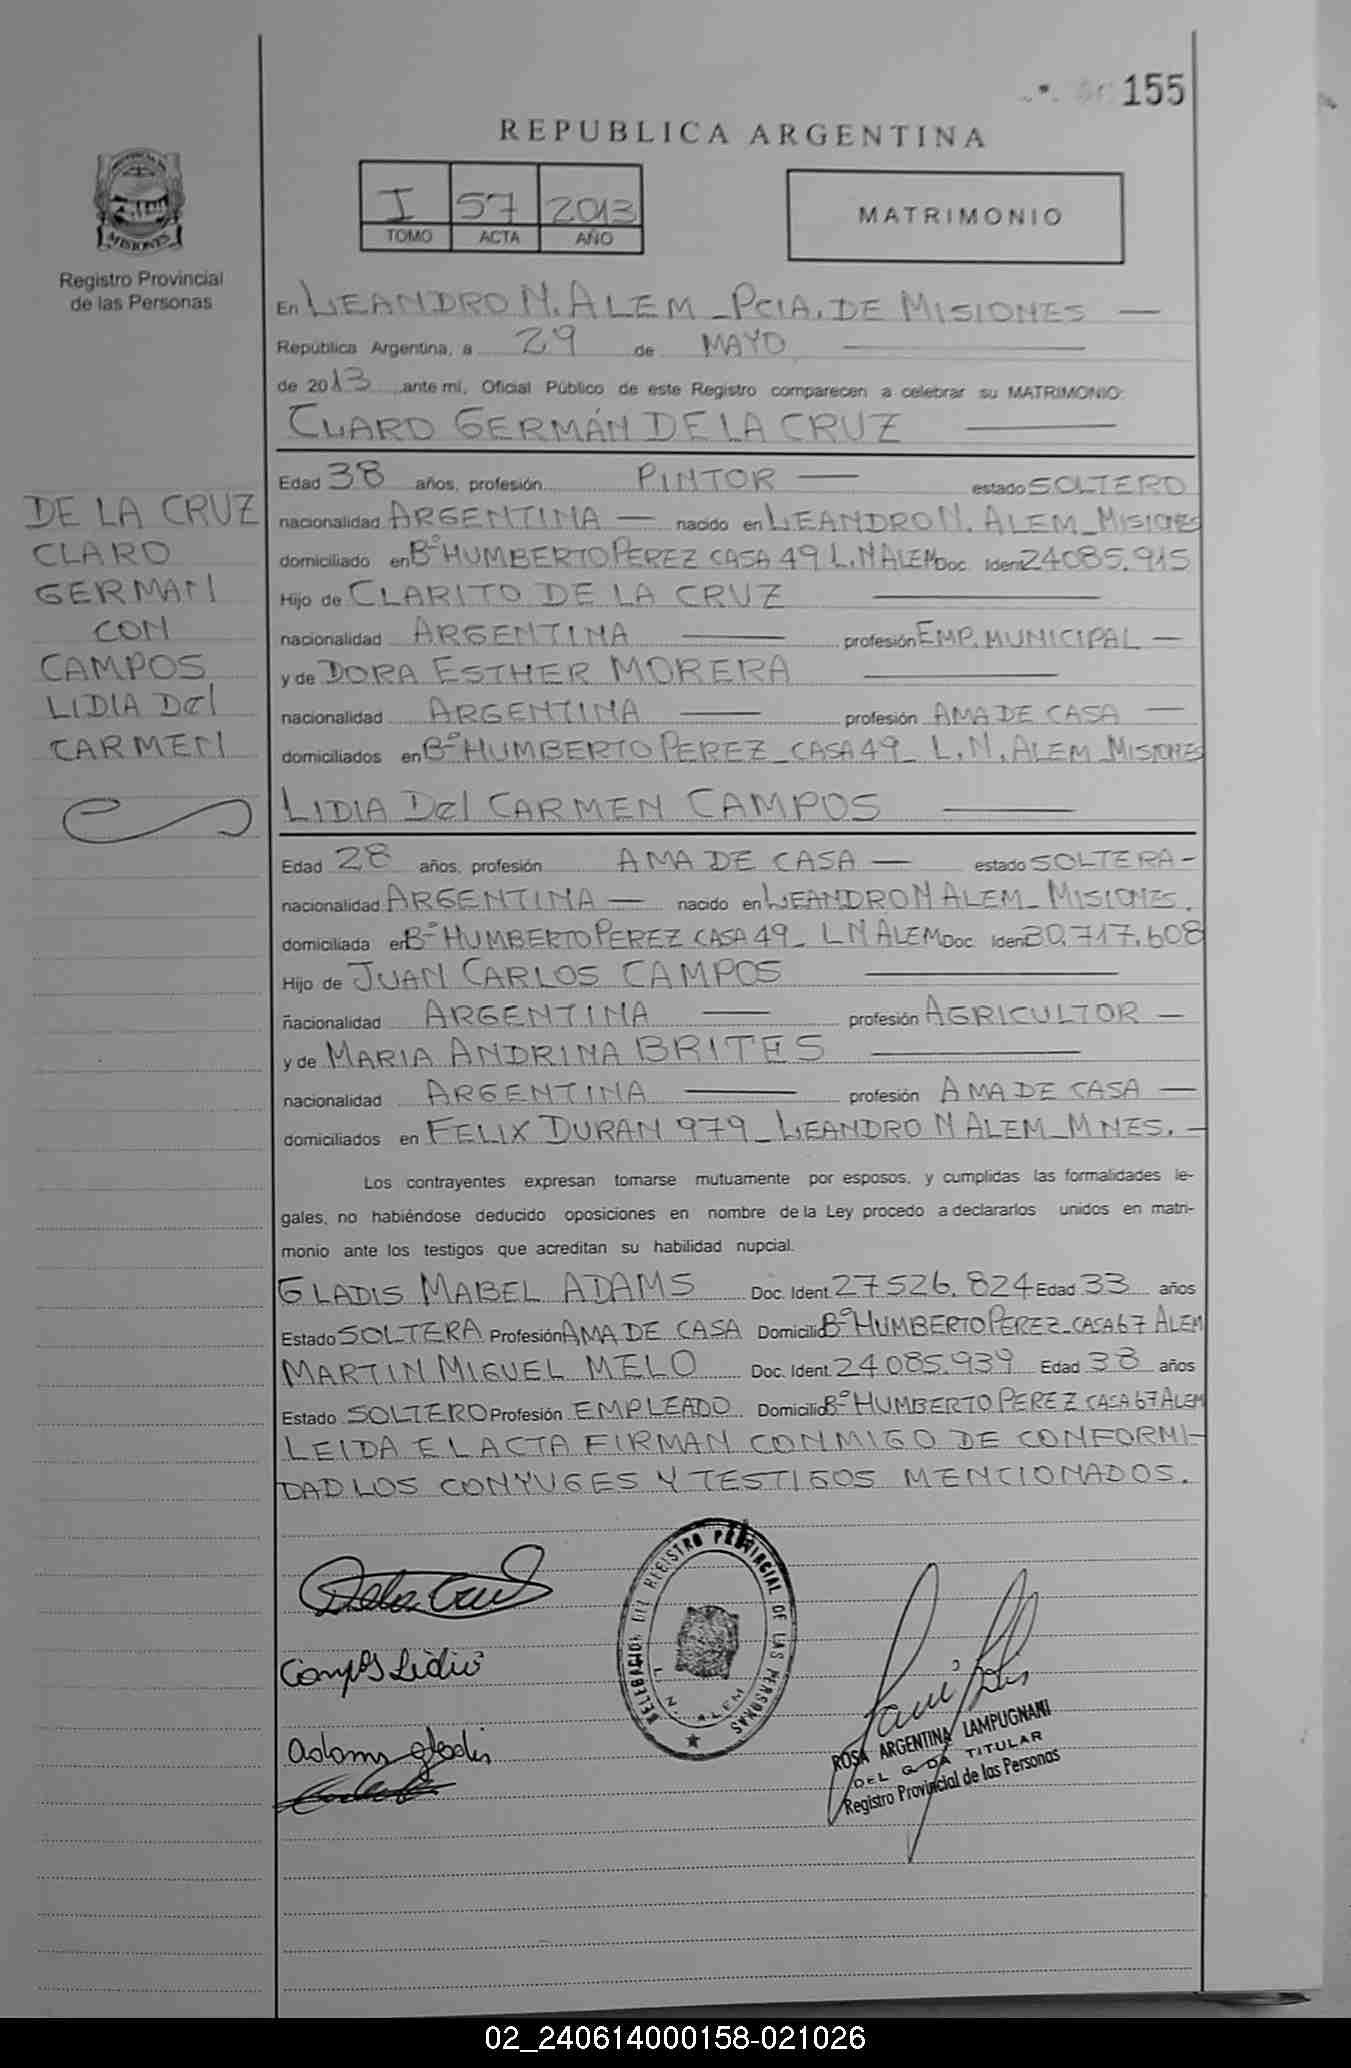 155
REPUBLICA ARGENTINA
I 57 2013
TOMO ACTA AÑO
MATRIMONIO
MISIONES
Registro Provincial
de las Personas
DE LA CRUZ
CLARO
GERMAN
CON
CAMPOS
LIDIA Del
CARMEN
En LEANDRO N. ALEM _ PCIA. DE MISIONES —
República Argentina, a 29 de MAYO
de 2013 ante mí, Oficial Público de este Registro comparecen a celebrar su MATRIMONIO:
CLARO GERMÁN DE LA CRUZ —
Edad 38 años, profesión PINTOR — estado SOLTERO
nacionalidad ARGENTINA — nacido en LEANDRO N. ALEM _ MISIONES
domiciliado en Bº HUMBERTO PEREZ CASA 49 L. N ALEM Doc. Ident 24085.915
Hijo de CLARITO DE LA CRUZ —
nacionalidad ARGENTINA — profesión EMP. MUNICIPAL —
y de DORA ESTHER MORERA —
nacionalidad ARGENTINA — profesión AMA DE CASA —
domiciliados en Bº HUMBERTO PEREZ _ CASA 49 _ L. N. ALEM _ MISIONES
LIDIA Del CARMEN CAMPOS —
Edad 28 años, profesión AMA DE CASA — estado SOLTERA -
nacionalidad ARGENTINA — nacido en LEANDRO N ALEM _ MISIONES.
domiciliada en Bº HUMBERTO PEREZ CASA 49 _ L N ALEM Doc. Ident 30.717.608
Hijo de JUAN CARLOS CAMPOS —
nacionalidad ARGENTINA — profesión AGRICULTOR —
y de MARIA ANDRINA BRITES —
nacionalidad ARGENTINA — profesión AMA DE CASA —
domiciliados en FELIX DURAN 979 _ LEANDRO N ALEM _ MNES. -
Los contrayentes expresan tomarse mutuamente por esposos, y cumplidas las formalidades le-
gales, no habiéndose deducido oposiciones en nombre de la Ley procedo a declararlos unidos en matri-
monio ante los testigos que acreditan su habilidad nupcial.
GLADIS MABEL ADAMS Doc. Ident. 27526.824 Edad 33 años
Estado SOLTERA Profesión AMA DE CASA Domicilio Bº HUMBERTO PEREZ _ CASA 67 ALEM
MARTIN MIGUEL MELO Doc. Ident. 24085.939 Edad 38 años
Estado SOLTERO Profesión EMPLEADO Domicilio Bº HUMBERTO PEREZ CASA 67 ALEM
LEIDA EL ACTA FIRMAN CONMIGO DE CONFORMI-
DAD LOS CONYUGES Y TESTIGOS MENCIONADOS.
De la Cruz
Campos Lidia
Adams gladis
DELEGACION DEL REGISTRO PROVINCIAL DE LAS PERSONAS
L. N. ALEM
ROSA ARGENTINA LAMPUGNANI
DELEGADA TITULAR
Registro Provincial de las Personas
02_240614000158-021026